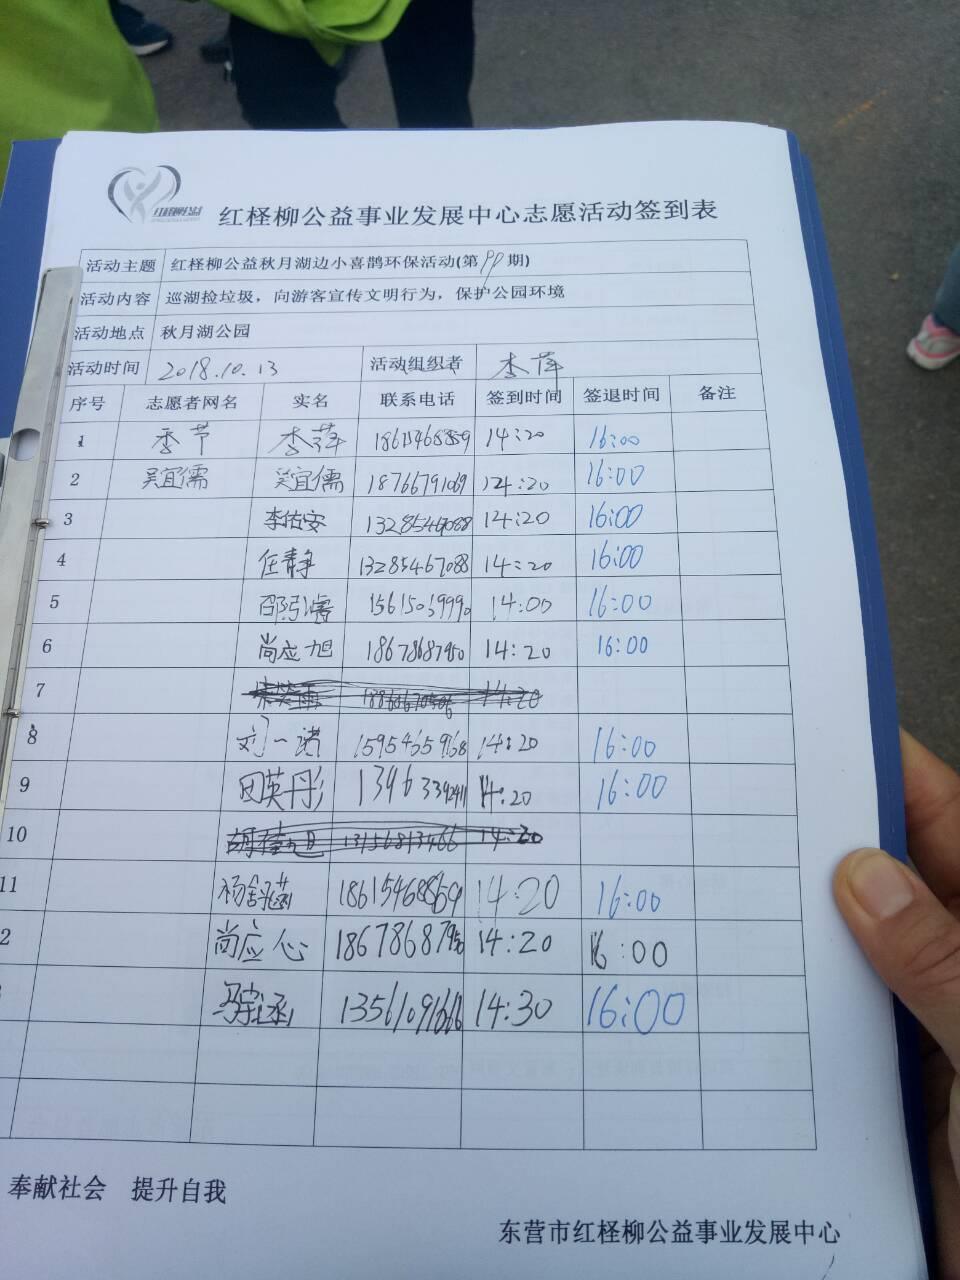 红柽柳公益
红柽柳公益事业发展中心志愿活动签到表
活动主题 红柽柳公益秋月湖边小喜鹊环保活动(第99期)
活动内容 巡湖捡垃圾，向游客宣传文明行为，保护公园环境
活动地点 秋月湖公园
活动时间 2018.10.13 活动组织者 李萍
序号 志愿者网名 实名 联系电话 签到时间 签退时间 备注
1 季节 李萍 18615468859 14:20 16:00
2 吴宜儒 吴宜儒 18766791069 14:20 16:00
3 李佑安 14:20 16:00
4 任静 13285467088 14:20 16:00
5 14:00 16:00
6 尚应旭 18678687950 14:20 16:00
7 14:20
8 刘一诺 15954659168 14:20 16:00
9 田英彤 14:20 16:00
10 14:20
11 杨舒涵 18615468859 14:20 16:00
2 尚应心 18678687950 14:20 16:00
14:30 16:00
奉献社会 提升自我
东营市红柽柳公益事业发展中心